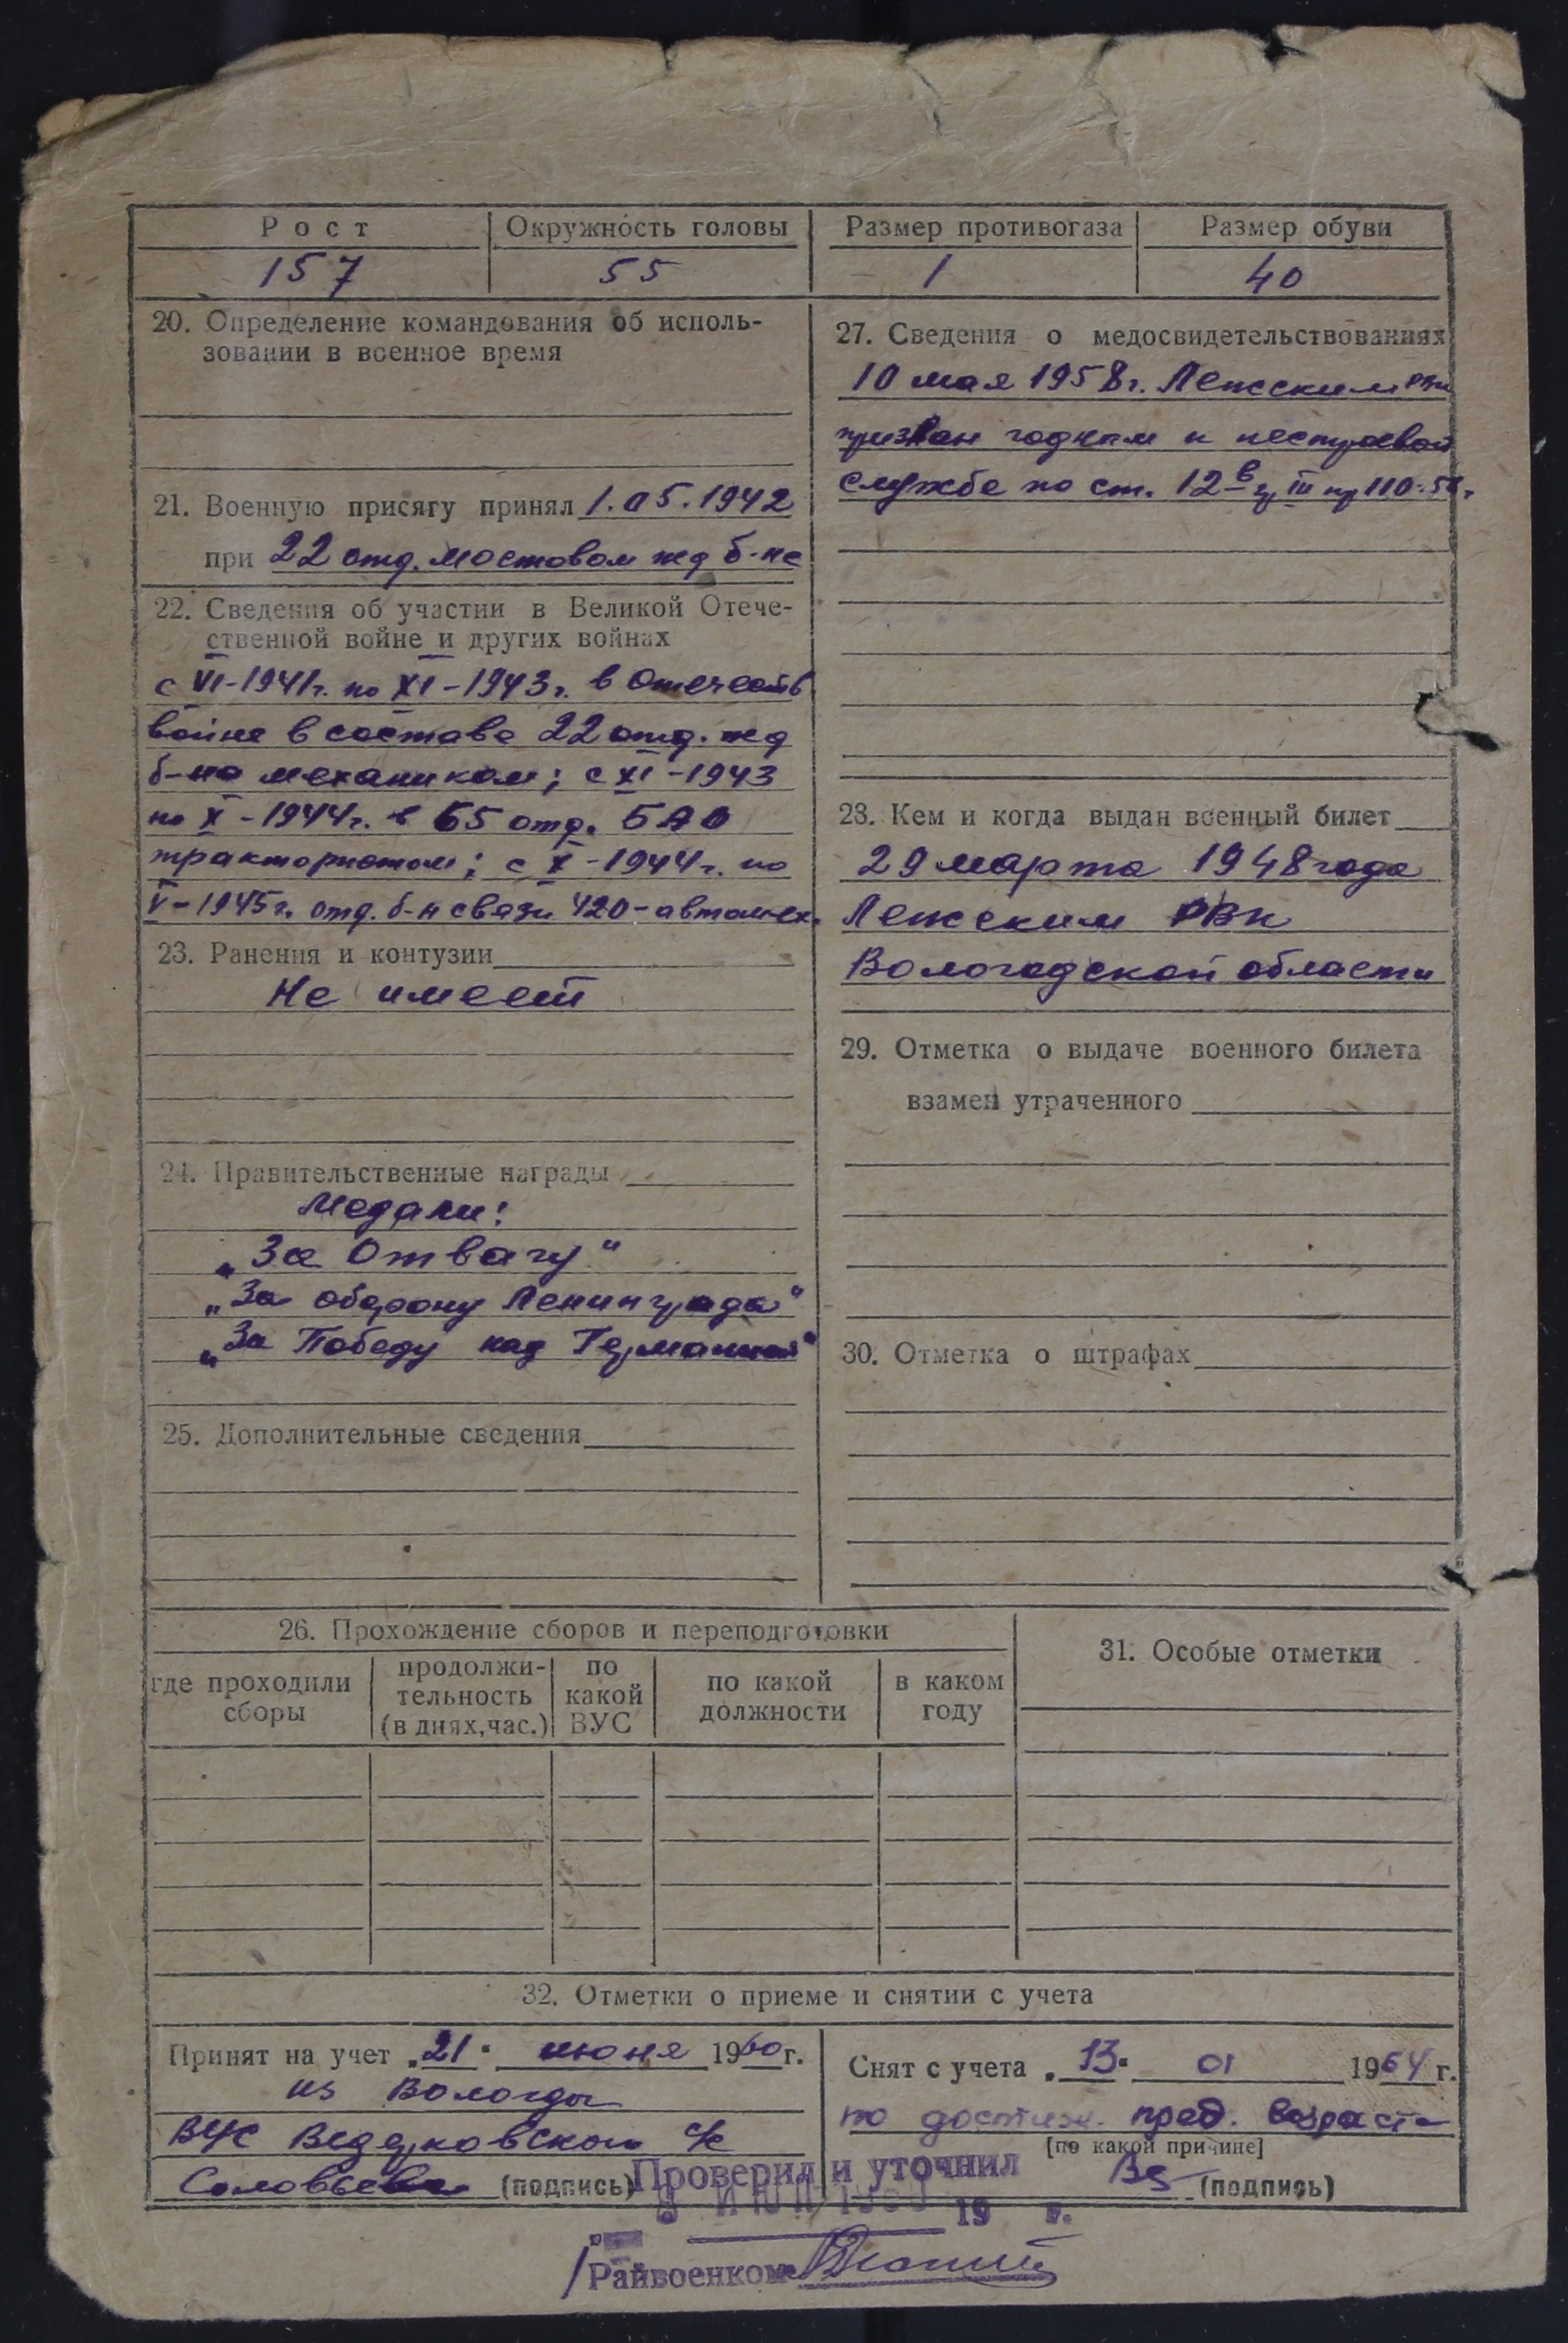 Рост Окружность головы Размер противогаза Размер обуви
157 55 1 40
20. Определение командования об исполь-
зовании в военное время
21. Военную присягу принял 1.05.1942
при 22 отд. мостовом жд б-не
22. Сведения об участии в Великой Отече-
ственной войне и других войнах
с VI-1941г. по XI-1943г. в Отечеств
войне в составе 22 отд. жд
б-на механиком; с XI-1943
по X-1944г. в 65 отд. БАО
трактористом; с X-1944г. по
V-1945г. отд. б-н связи 420-автомех.
23. Ранения и контузии
Не имеет
24. Правительственные награды
Медали:
„За Отвагу"
„За оборону Ленинграда"
„За Победу над Германией"
25. Дополнительные сведения
27. Сведения о медосвидетельствованиях
10 мая 1958г. Лежским РВК
признан годным к нестроевой
службе по ст. 12в гр III пр 110-
28. Кем и когда выдан военный билет
29 марта 1948 года
Лежским РВК
Вологодской области
29. Отметка о выдаче военного билета
взамен утраченного
30. Отметка о штрафах
26. Прохождение сборов и переподготовки
где проходили
сборы
продолжи-
тельность
(в днях, час.)
по
какой
ВУС
по какой
должности
в каком
году
31. Особые отметки
32. Отметки о приеме и снятии с учета
Принят на учет „21" июня 1960г.
из Вологды
ВУС с/с
Соловьева (подпись)
Снят с учета „13" 01 1964г.
по достиж. пред. возраста
[по какой причине]
(подпись)
Проверил и уточнил
19 г.
Райвоенком